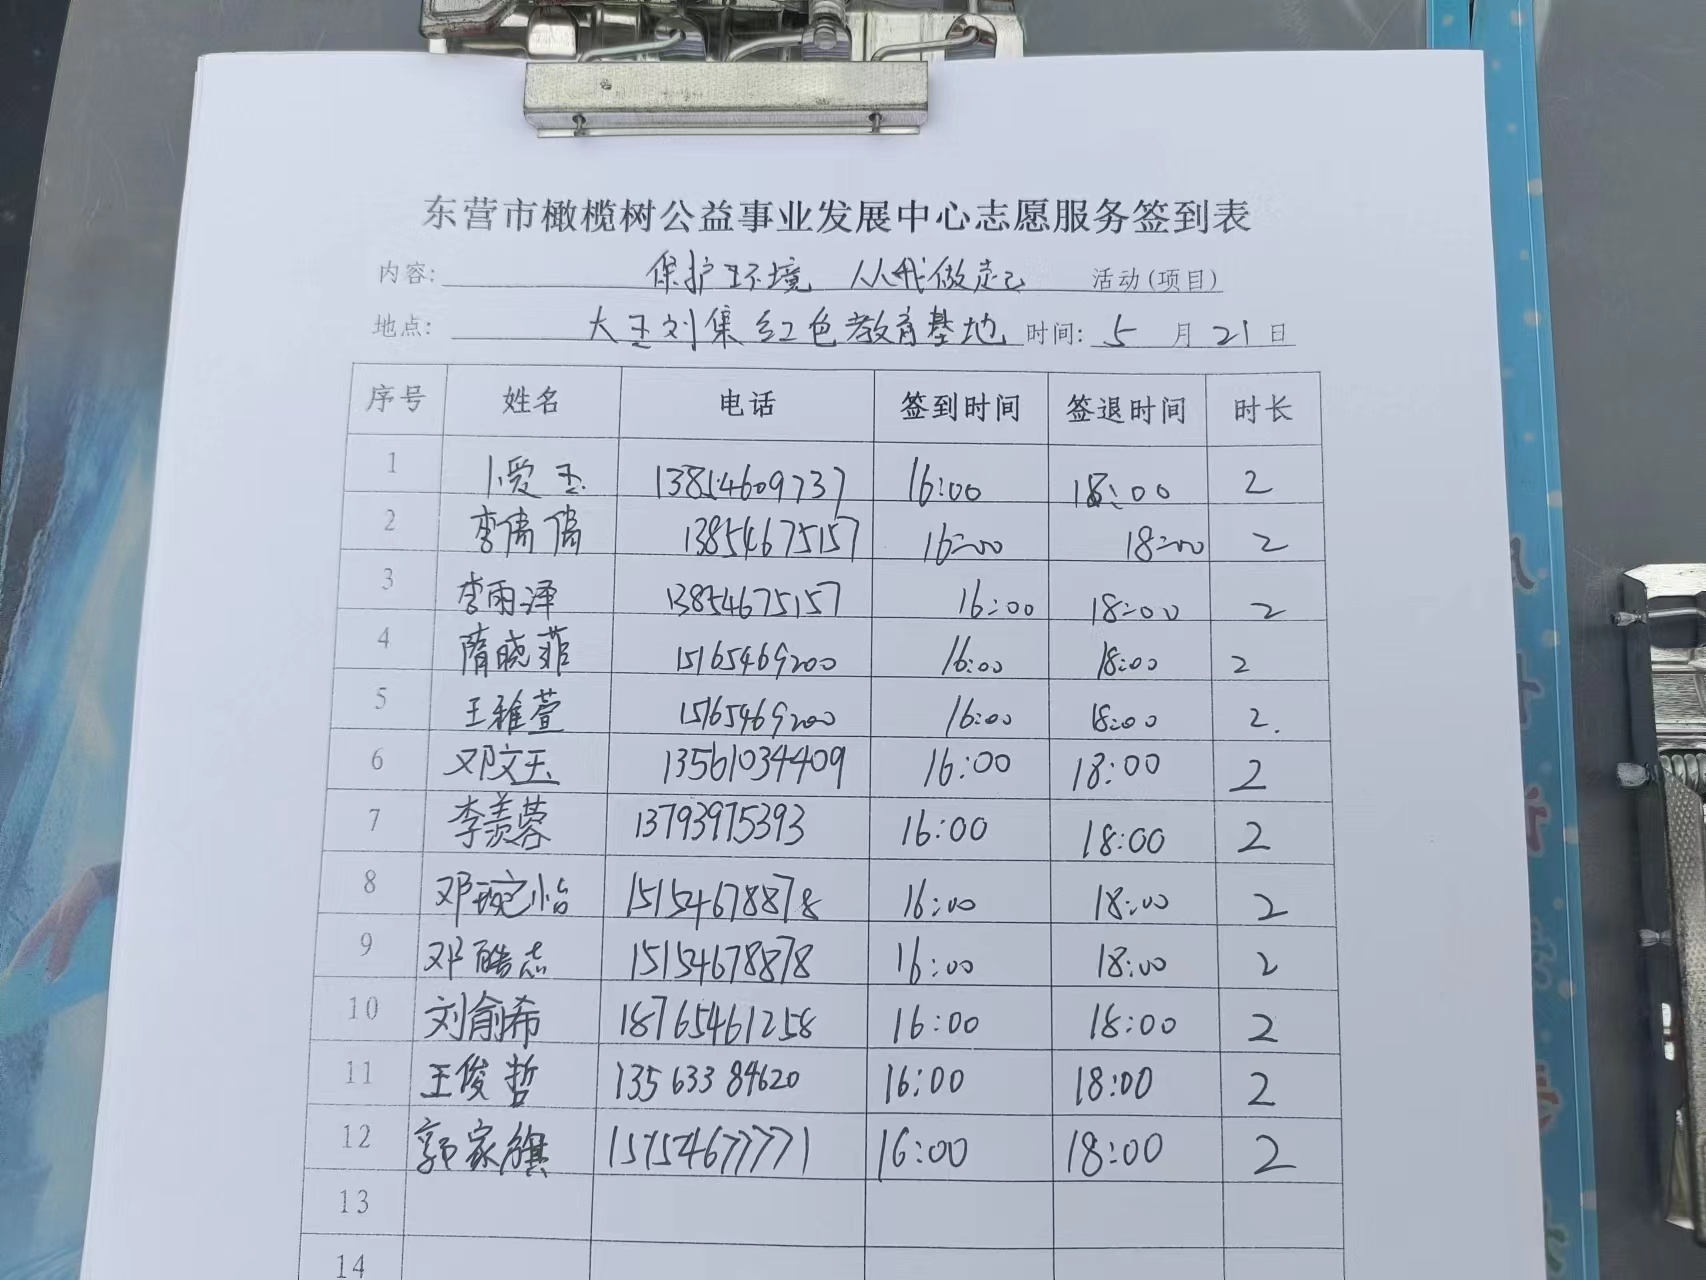 东营市橄榄树公益事业发展中心志愿服务签到表
内容: 保护环境 从我做起 活动(项目)
地点: 大王刘集红色教育基地 时间: 5 月 21 日
序号 姓名 电话 签到时间 签退时间 时长
1 卜爱玉 13854609737 16:00 18:00 2
2 李倩倩 13854675157 16:00 18:00 2
3 李雨泽 13854675157 16:00 18:00 2
4 隋晓菲 15165469200 16:00 18:00 2
5 王雅萱 15165469200 16:00 18:00 2.
6 邓文玉 13561034409 16:00 18:00 2
7 李羡蓉 13793975393 16:00 18:00 2
8 邓琬怡 15154678878 16:00 18:00 2
9 邓皓志 15154678878 16:00 18:00 2
10 刘俞希 18765461258 16:00 18:00 2
11 王俊哲 13563384620 16:00 18:00 2
12 郭家旗 15154677771 16:00 18:00 2
13
14